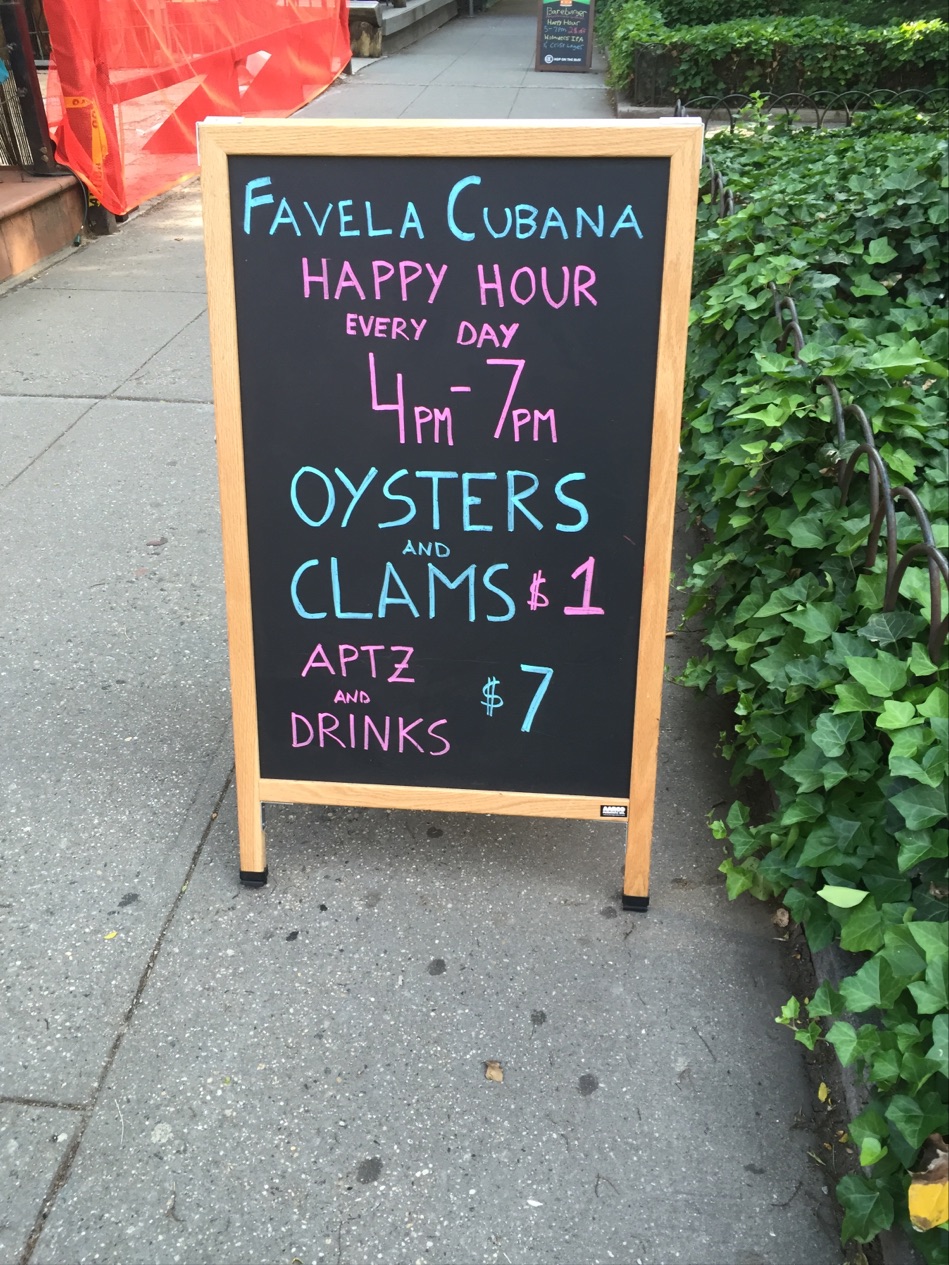 Bareburger
Happy Hour
FAVELA CUBANA
HAPPY HOUR
EVERY DAY
4PM-7PM
OYSTERS
AND
CLAMS $1
APTZ
AND
DRINKS
$7